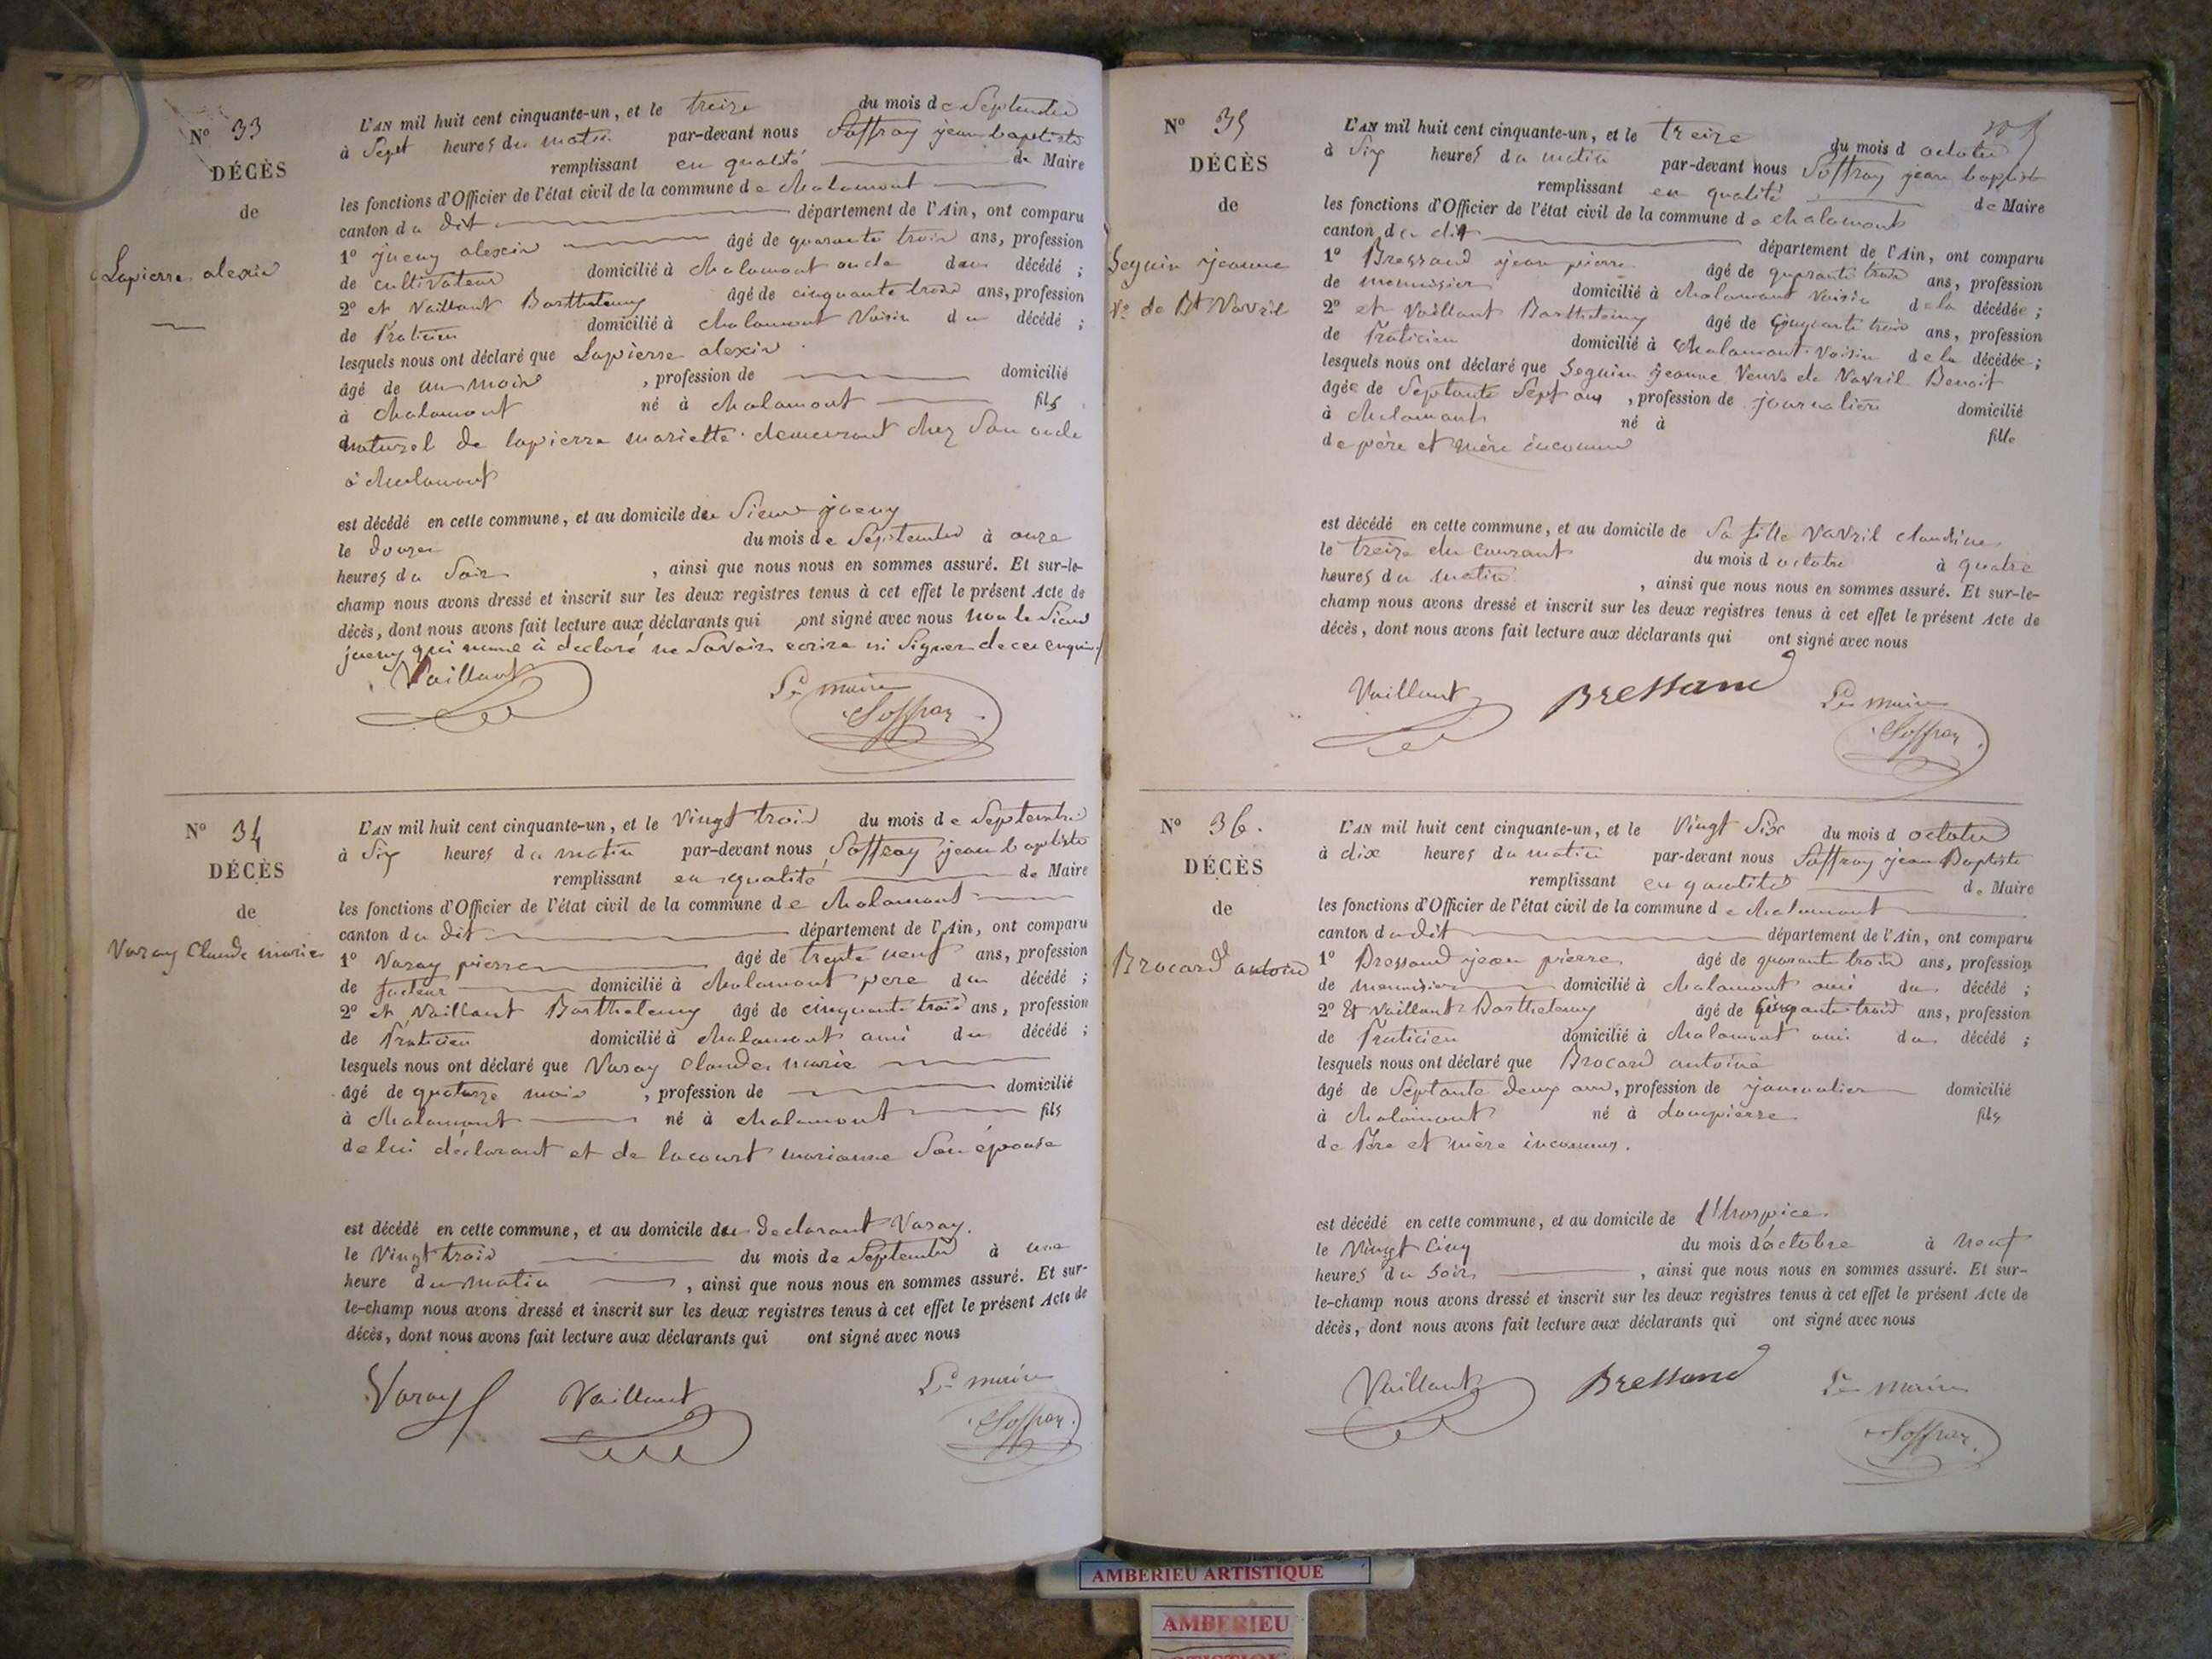 N° 33
DÉCÈS
de
Lapierre alexis
L'AN mil huit cent cinquante-un, et le treize du mois de Septembre
à Sept heures du matin par-devant nous Soffray jean baptiste
remplissant en qualité de Maire
les fonctions d'Officier de l'état civil de la commune de chalamont
canton du dit département de l'Ain, ont comparu
1° jueny alexis âgé de quarante trois ans, profession
de cultivateur domicilié à chalamont oncle du décédé ;
2° et Vaillant Barthelemy âgé de cinquante trois ans, profession
de Praticien domicilié à chalamont Voisin du décédé ;
lesquels nous ont déclaré que Lapierre alexis
âgé de un mois , profession de domicilié
à chalamont né à chalamont fils
naturel de lapierre mariette demeurant chez Son oncle
à chalamont
est décédé en cette commune, et au domicile du Sieur jueny
le douze du mois de Septembre à onze
heures du Soir , ainsi que nous nous en sommes assuré. Et sur-le-
champ nous avons dressé et inscrit sur les deux registres tenus à cet effet le présent Acte de
décès, dont nous avons fait lecture aux déclarants qui ont signé avec nous non le Sieur
jueny qui a déclaré ne Savoir ecrire ni Signer de ce enquis
Vaillant
Le maire
Soffray
N° 34
DÉCÈS
de
Varay Claude marie
L'AN mil huit cent cinquante-un, et le Vingt trois du mois de Septembre
à Six heures du matin par-devant nous Soffray jean baptiste
remplissant en qualité de Maire
les fonctions d'Officier de l'état civil de la commune de chalamont
canton du dit département de l'Ain, ont comparu
1° Varay pierre âgé de trente neuf ans, profession
de facteur domicilié à chalamont pere du décédé ;
2° et Vaillant Barthelemy âgé de cinquante trois ans, profession
de Praticien domicilié à chalamont ami du décédé ;
lesquels nous ont déclaré que Varay Claude marie
âgé de quatorze mois , profession de domicilié
à chalamont né à chalamont fils
de lui déclarant et de lacourt marianne Son épouse
est décédé en cette commune, et au domicile du declarant Varay.
le Vingt trois du mois de Septembre à une
heure du matin , ainsi que nous nous en sommes assuré. Et sur-
le-champ nous avons dressé et inscrit sur les deux registres tenus à cet effet le présent Acte de
décès, dont nous avons fait lecture aux déclarants qui ont signé avec nous
Varay Vaillant
Le maire
Soffray
N° 35
DÉCÈS
de
Seguin jeanne
Ve de Bt Vavril
L'AN mil huit cent cinquante-un, et le treize du mois d octobre
à Six heures du matin par-devant nous Soffray jean baptiste
remplissant en qualité de Maire
les fonctions d'Officier de l'état civil de la commune de chalamont
canton du dit département de l'Ain, ont comparu
1° Bressand jean pierre âgé de quarante trois ans, profession
de menuisier domicilié à chalamont Voisin de la décédée ;
2° et Vaillant Barthelemy âgé de Cinquante trois ans, profession
de Praticien domicilié à chalamont Voisin de la décédée ;
lesquels nous ont déclaré que Seguin jeanne Veuve de Vavril Benoit
âgée de Septante Sept ans , profession de journalière domicilié
à chalamont né à fille
de père et mère inconnus
est décédé en cette commune, et au domicile de Sa fille Vavril claudine
le treize du Courant du mois d octobre à quatre
heures du matin , ainsi que nous nous en sommes assuré. Et sur-le-
champ nous avons dressé et inscrit sur les deux registres tenus à cet effet le présent Acte de
décès, dont nous avons fait lecture aux déclarants qui ont signé avec nous
Vaillant Bressand Le maire
Soffray
N° 36.
DÉCÈS
de
Brocard antoine
L'AN mil huit cent cinquante-un, et le Vingt Six du mois d octobre
à dix heures du matin par-devant nous Soffray jean Baptiste
remplissant en qualité de Maire
les fonctions d'Officier de l'état civil de la commune de chalamont
canton du dit département de l'Ain, ont comparu
1° Bressand jean pierre âgé de quarante trois ans, profession
de menuisier domicilié à chalamont ami du décédé ;
2° Et Vaillant Barthelemy âgé de Cinquante trois ans, profession
de Praticien domicilié à chalamont ami du décédé ;
lesquels nous ont déclaré que Brocard antoine
âgé de Septante deux ans, profession de journalier domicilié
à chalamont né à dompierre fils
de Père et mère inconnus.
est décédé en cette commune, et au domicile de l'hospice.
le Vingt Cinq du mois d'octobre à neuf
heures du Soir , ainsi que nous nous en sommes assuré. Et sur-
le-champ nous avons dressé et inscrit sur les deux registres tenus à cet effet le présent Acte de
décès, dont nous avons fait lecture aux déclarants qui ont signé avec nous
Vaillant Bressand Le maire
Soffray
AMBERIEU ARTISTIQUE
AMBERIEU
ARTISTIQUE